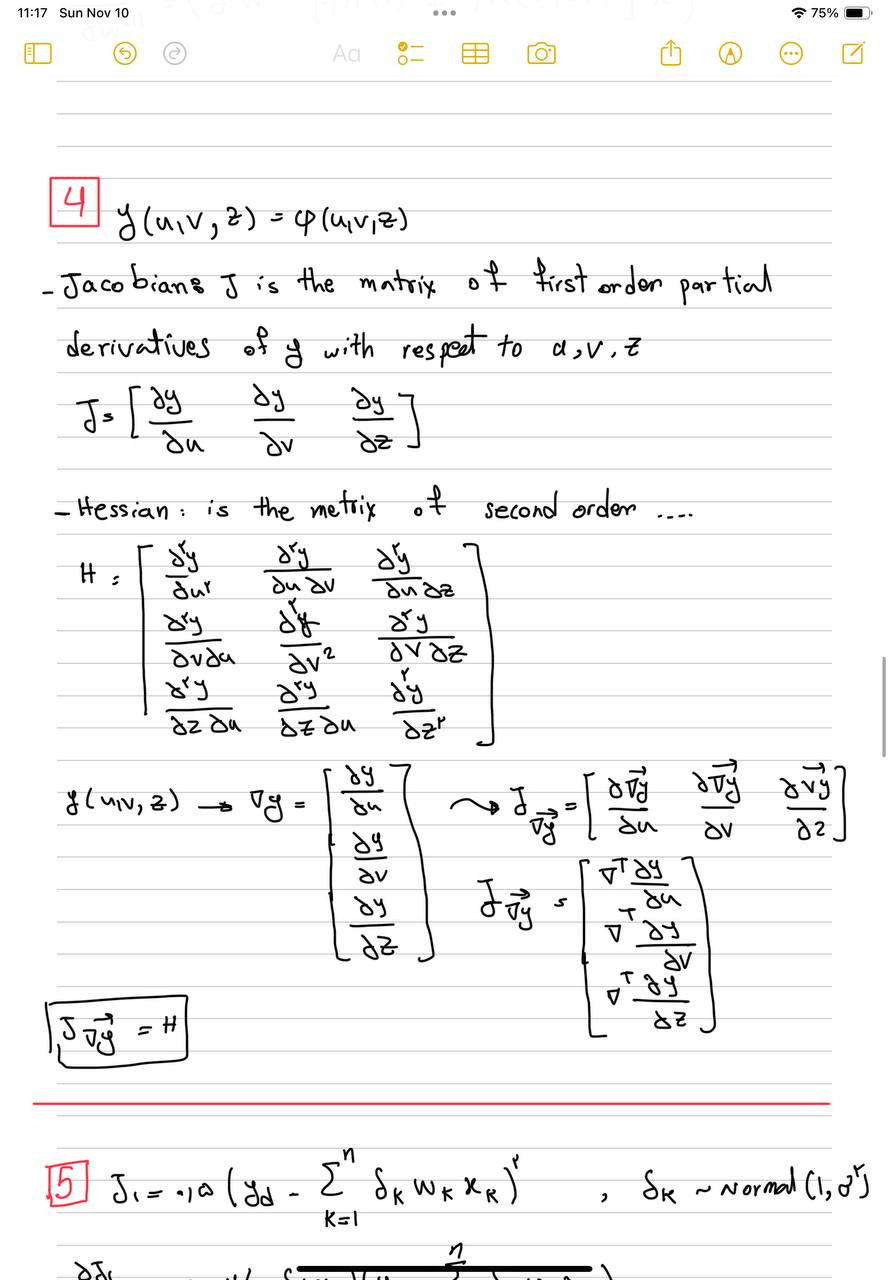 11:17 Sun Nov 10
75%
Aa
4
y(u,v,z) = φ(u,v,z)
- Jacobians J is the matrix of first order partial
derivatives of y with respect to u,v,z
J = [∂y/∂u ∂y/∂v ∂y/∂z]
- Hessian: is the metrix of second order ....
H = [∂²y/∂u² ∂²y/∂u∂v ∂²y/∂u∂z
∂²y/∂v∂u ∂²y/∂v² ∂²y/∂v∂z
∂²y/∂z∂u ∂²y/∂z∂u ∂²y/∂z²]
y(u,v,z) → ∇y = [∂y/∂u ∂y/∂v ∂y/∂z] ⇝ J_∇y⃗ = [∂∇y⃗/∂u ∂∇y⃗/∂v ∂∇y⃗/∂z]
J_∇y⃗ = [∇ᵀ ∂y/∂u
∇ᵀ ∂y/∂v
∇ᵀ ∂y/∂z]
J_∇y⃗ = H
5
J₁ = ٠,١٥ (y_d - Σ_{K=1}^{n} δ_K w_K x_K)² , δ_K ~ Normal(1, σ²)